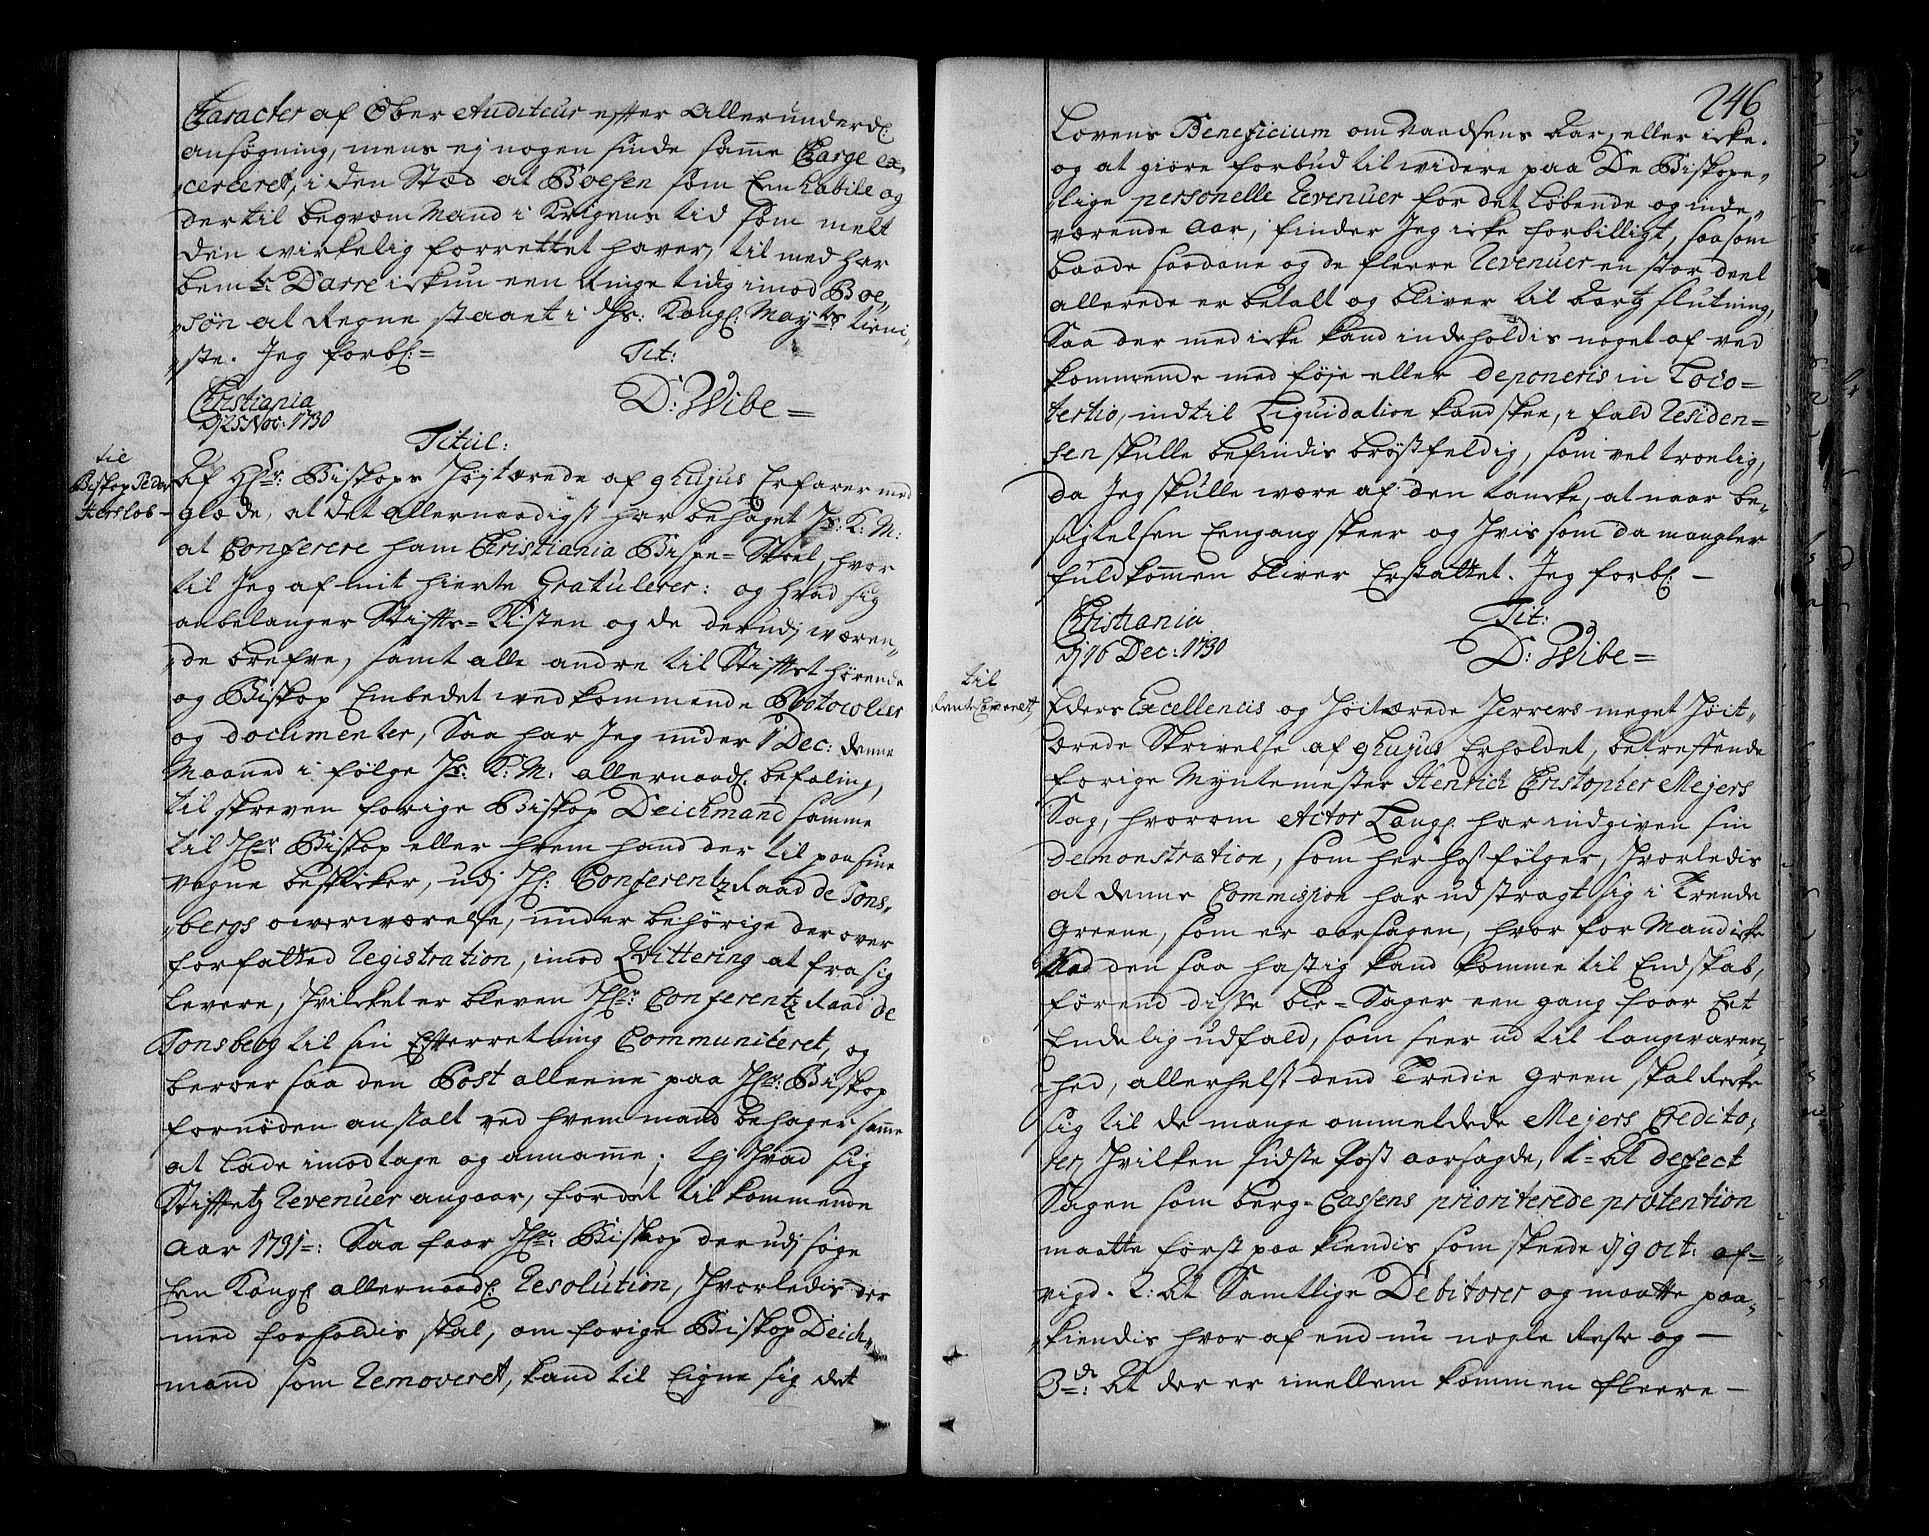 Character af Ober Auditeur efter Allerunderd:
ansøgning, mens ej nogen sinde samme Charge ex„
„cerceret, i den Stæd at Boesen som Een habile og
dertil beqvem Mand i Krigens tid som melt
den wirkelig forrettet haver, til med har
bem:te Darre ickun een Ringe tidg imod Boe„
„søn at Regne staaet i Hs: Kongl: May:ts tieni„
„ste. Jeg forbl: =
Tit:
Christiania
dj 25 Nov: 1730
D: Wibe =
Titul:
til
Biskop Peder
Hersleb –
Af Hr: Biskops Høytærede af 9 hujus Erfarer med
glæde, at det allernaadigst har behaget Hs: K: M:
at Conferere ham Christiania Bispe= Stoel, hvor
til Jeg af mit hierte Gratulerer: og hvad sig
anbelanger Stiffts= Kisten og de derudj væren„
„de brefve, samt alle andre til Stifftet hørende
og Biskop Embedet wedkommende Protocoller
og documenter, Saa har Jeg under 1 Dec: denne
Maaned i følge Hs: K: M: allernaad: befaling,
til skreven forige Biskop Deichmand samme
til Hr: Biskop eller hvem hand der til paa sine
vegne beskicker, udj H: Conferentz Raad de Tons„
„bergs overværelse, under behørige der over
forfatted Registration, imod Qvittering at fra sig
levere, Hvilcket er bleven Hr: Conferentz Raad de
Tonsberg til sin Efterretning Communiceret, og
beroer saa den Post alleene paa Hr: Biskop
fornøden anstalt ved hvem mand behager samme
at lade imodtage og annamme; thj Hvad sig
Stifftetz Revenuer angaar, for det tilkommende
Aar 1731 =: Saa faar Hr: Biskop derudj søge
Een Kongl allernaad: Resolution, Hvorledis der
med forholdis skal, om forige Biskop Deich„
mand som Removeret, kand til Eigne sig det
246
Lovens Beneficium om Naadsens Aar, eller icke.
og at giøre forbud til widere paa De Biskope„
„lige personelle Revenuer for det løbende og inde„
værende Aar, finder Jeg icke forbilligt, saasom
baade saadane og de fleere Revenuer en stor deel
allerede er betalt og bliver til Aartz slutning,
Saa der med icke kand indeholdis noget af ved
kommende med føje eller deponeris in Loco=
tertio, indtil Liquidation kand skee, i fald Residen=
sen skulle befindis brøstfeldig, som vel troelig,
da Jeg skulle være af den tancke, at naar be„
sigtelsen Eengang skeer og Hvis som da mangler
fuldkommen bliver Erstattet. Jeg forbl: –
Christiania
dj 16 Dec: 1730
Tit:
D: Wibe =
til
Rente Cameret
Eders Excellencis og Høitærede Herrers meget Høit„
ærede Skrivelse af 9 hujus Erholdet, betreffende
forige Myntemester Henrich Christopher Mejers
Sag, hvorom Actor Lang: har indgiven sin
demonstration, som her hos følger, Hvorledis
at denne Commission har udstragt sig i Trende
Greene, som er aarsagen, hvor for Mand icke
den saa hastig kand komme til Endskab,
førend disse bie= Sager een gang faar Eet
Endelig udfald, som seer ud til langvaren„
hed, allerhelst dend Tredie Green skal Recke
sig til de mange ommeldede Mejers Credito„
rer, Hvilken sidste Post aarsagde, 1= At defect
Sagen som berg= Cassens prioriterede prætention
maatte først paa kiendis som skeede dj 9 Oct: af=
vigd. 2: At Samtlige Debitorer og maatte paa„
„kiendis hvor af end nu nogle Reste og –
3de: At der er imellem kommen fleere –